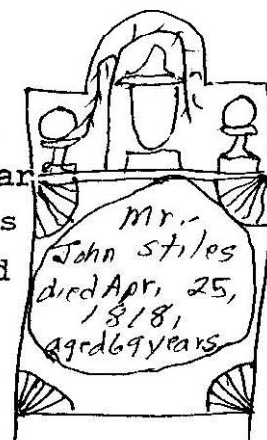 ar
s
d
Mr.
John Stiles
died Apr. 25,
1818,
aged 69 years